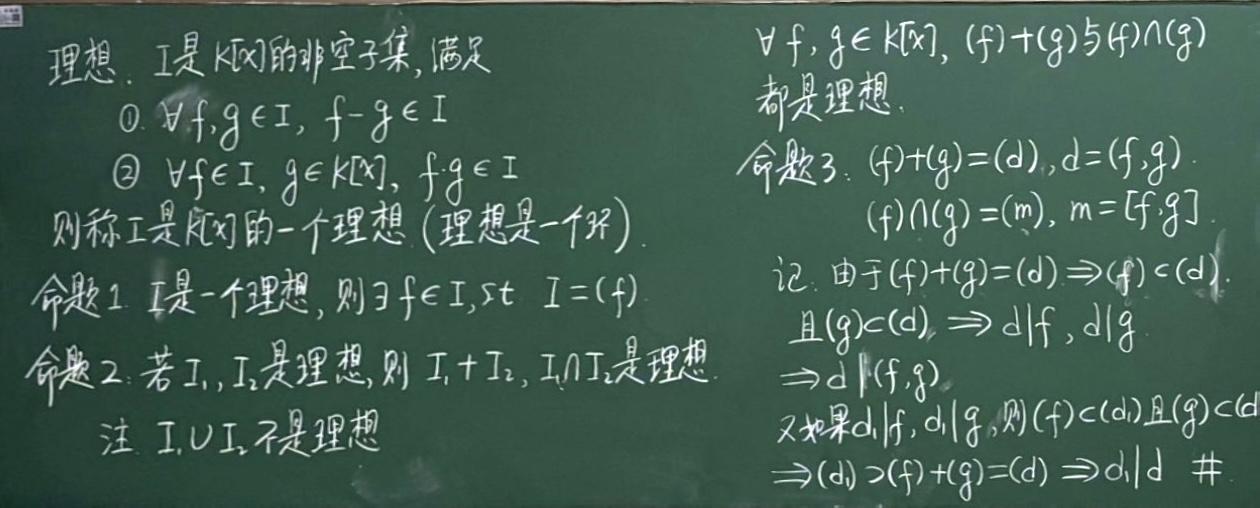 理想. I是K[x]的非空子集,满足
①. ∀f,g∈I, f-g∈I
② ∀f∈I, g∈K[x], f·g∈I
则称I是K[x]的一个理想 (理想是一个环).
命题1. I是一个理想,则∃f∈I,st I=(f).
命题2:若I₁,I₂是理想,则 I₁+I₂, I₁∩I₂是理想.
注 I₁∪I₂不是理想
∀f,g∈K[x], (f)+(g)与(f)∩(g)
都是理想.
命题3: (f)+(g)=(d), d=(f,g).
(f)∩(g)=(m), m=[f,g].
记. 由于(f)+(g)=(d)⇒(f)⊂(d).
且(g)⊂(d), ⇒d|f, d|g.
⇒d|(f,g)
又如果d₁|f, d₁|g,则(f)⊂(d₁)且(g)⊂(d
⇒(d₁)⊃(f)+(g)=(d)⇒d₁|d #